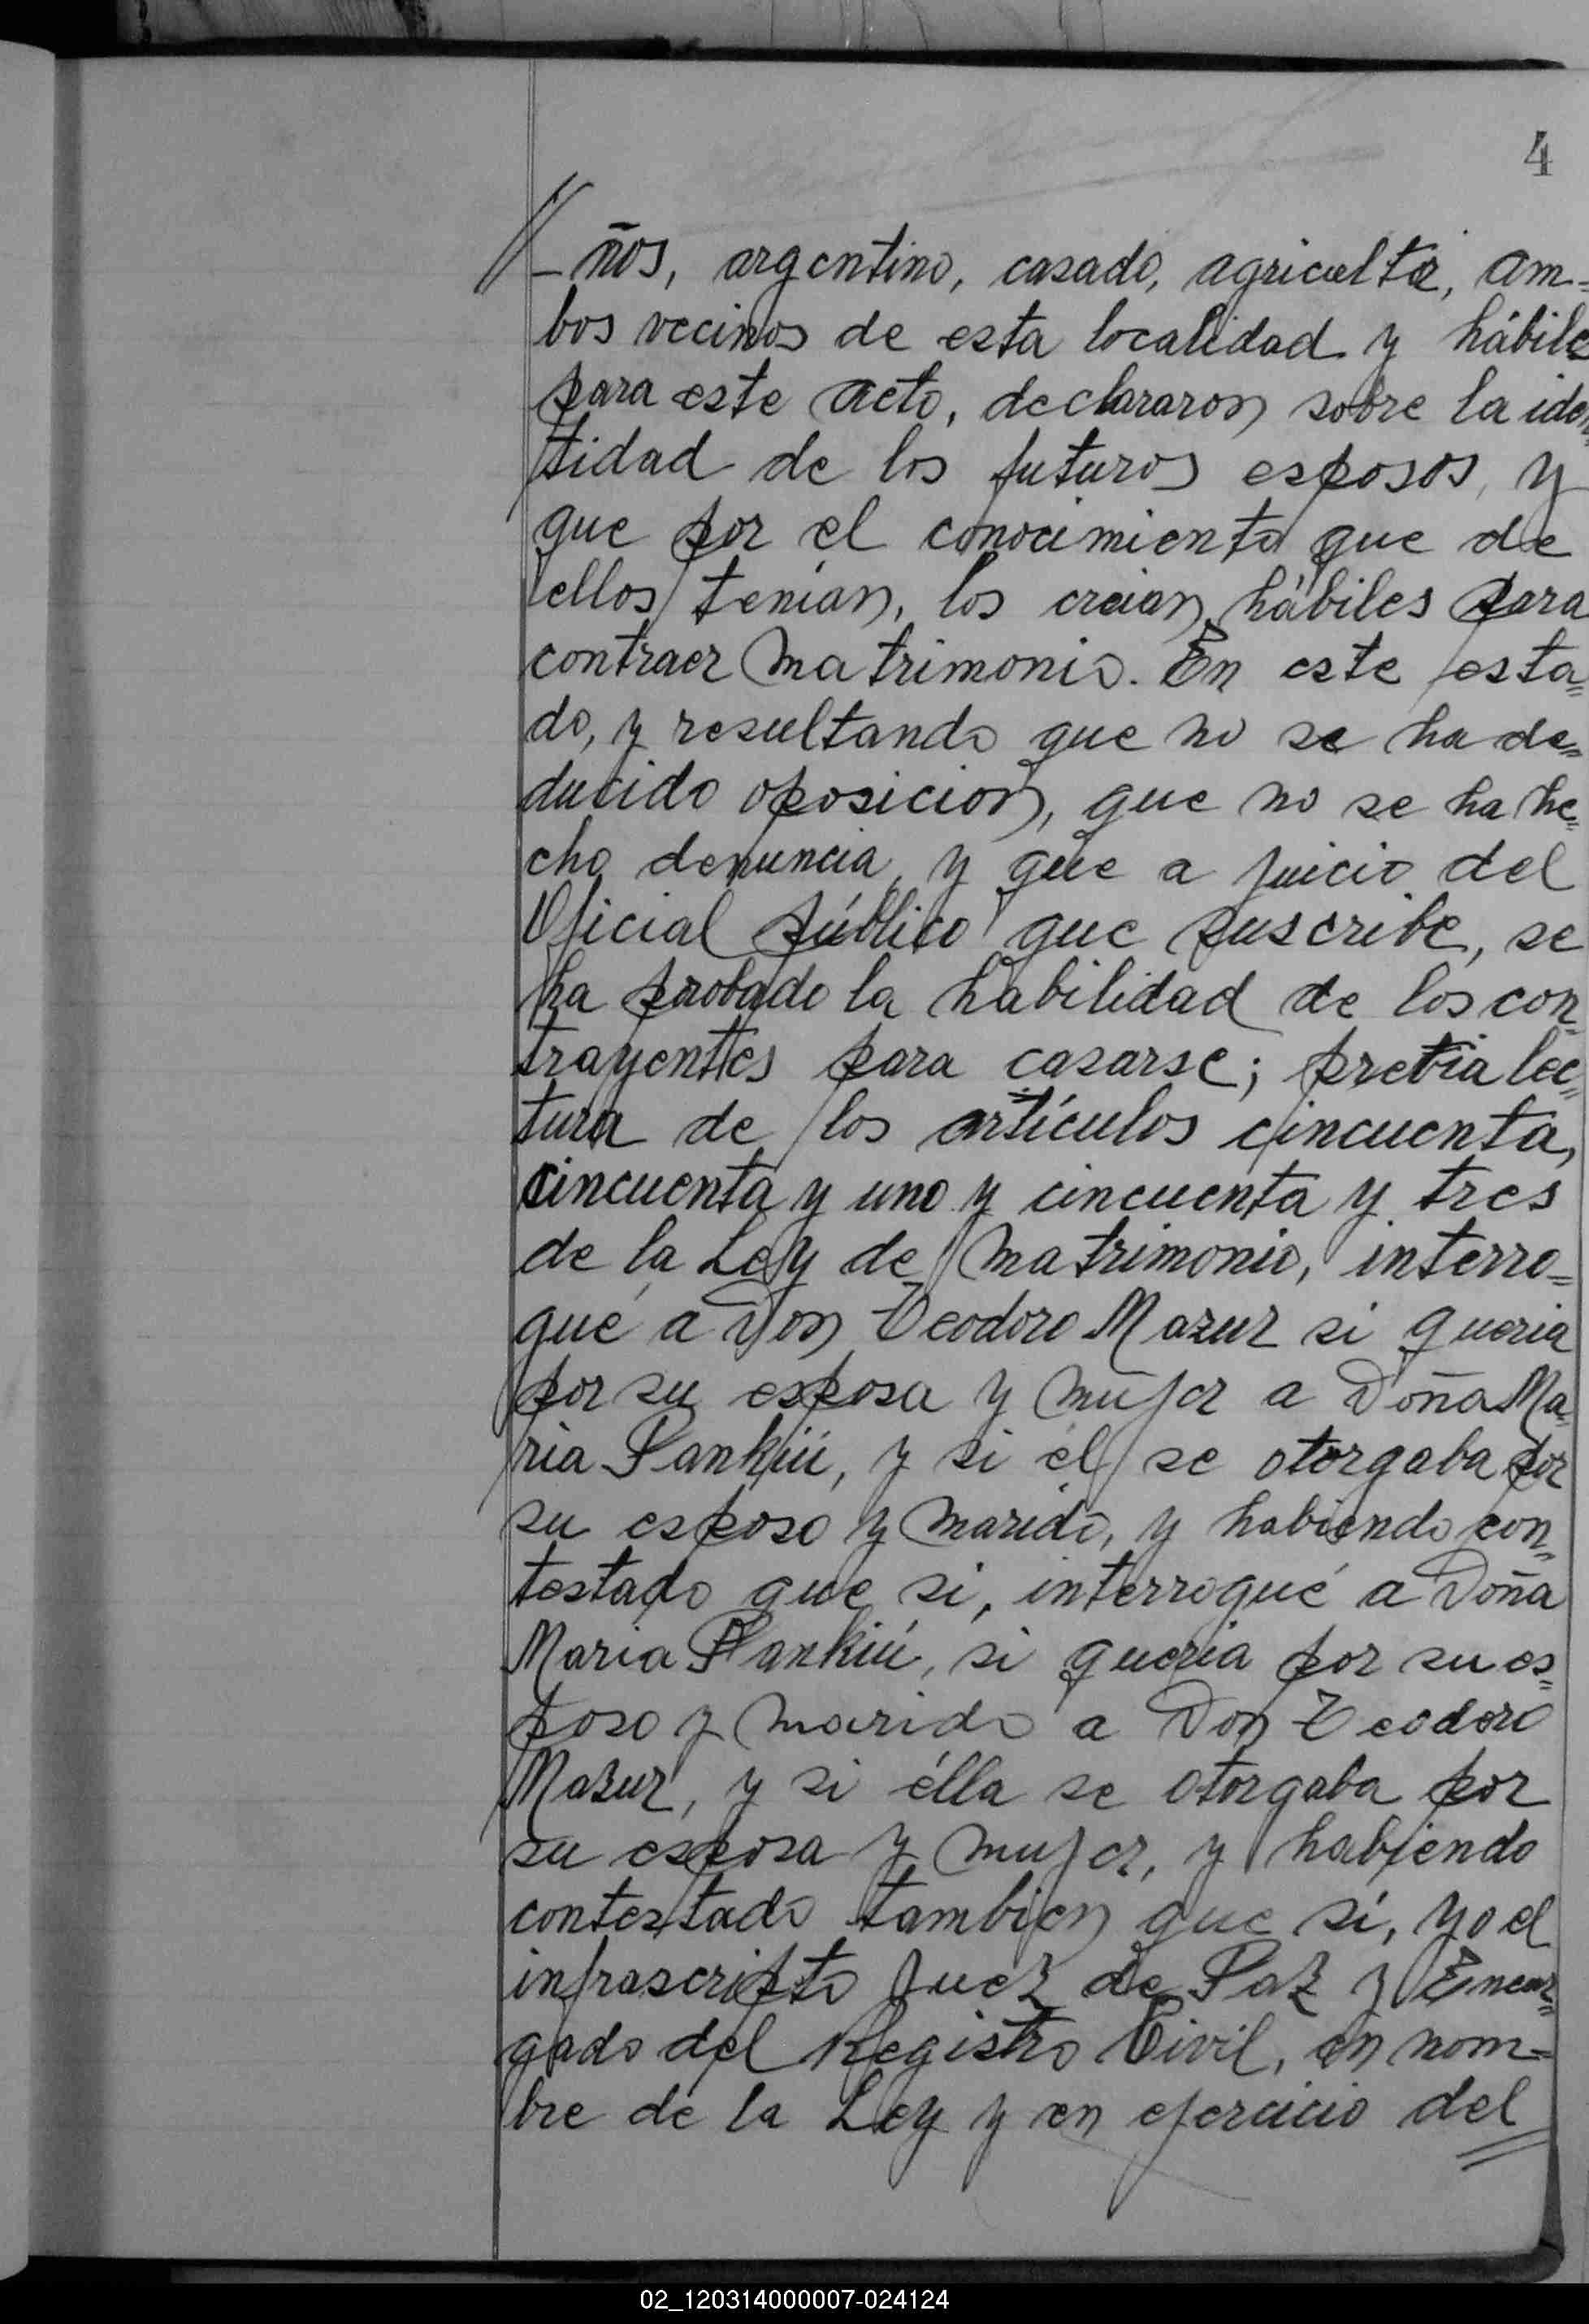 4
-ños, argentino, casado, agricultor, am=
bos vecinos de esta localidad y hábile
para este acto, declararon sobre la iden
tidad de los futuros esposos, y
que por el conocimiento que de
ellos tenían, los creian hábiles para
contraer matrimonio. En este esta=
do, y resultando que no se ha de=
ducido oposicion, que no se ha he=
cho denuncia, y que a juicio del
Oficial público que suscribe, se
ha probado la habilidad de los con=
trayentes para casarse; previa lec=
tura de los artículos cincuenta,
cincuenta y uno y cincuenta y tres
de la Ley de matrimonio, interro=
gué a Don Teodoro Mazur si queria
por su esposa y mujer a Doña Ma=
ria Pankiú, y si él se otorgaba por
su esposo y marido, y habiendo con=
testado que si, interrogué a Doña
Maria Pankiú, si queria por su es=
poso y marido a Don Teodoro
Mazur, y si élla se otorgaba por
su esposa y mujer, y habiendo
contestado tambien que sí, yo el
infrascripto Juez de Paz y Encar=
gado del Registro Civil, en nom=
bre de la Ley y en ejercicio del
02_120314000007-024124